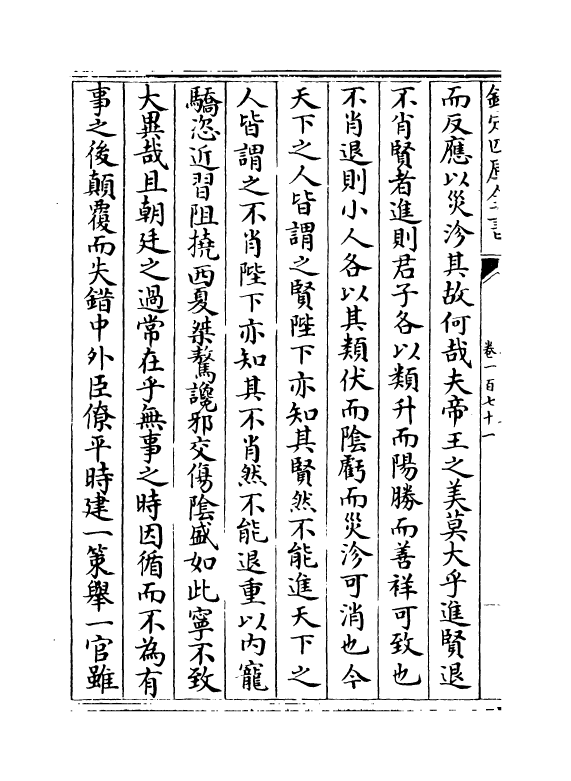 欽定四庫全書
卷一百七十一
而反應以災沴其故何哉夫帝王之美莫大乎進賢退
不肖賢者進則君子各以類升而陽勝而善祥可致也
不肖退則小人各以其類伏而陰虧而災沴可消也今
天下之人皆謂之賢陛下亦知其賢然不能進天下之
人皆謂之不肖陛下亦知其不肖然不能退重以内寵
驕恣近習阻撓西夏桀驁讒邪交傷陰盛如此寧不致
大異哉且朝廷之過常在乎無事之時因循而不為有
事之後顛覆而失錯中外臣僚平時建一策舉一官雖